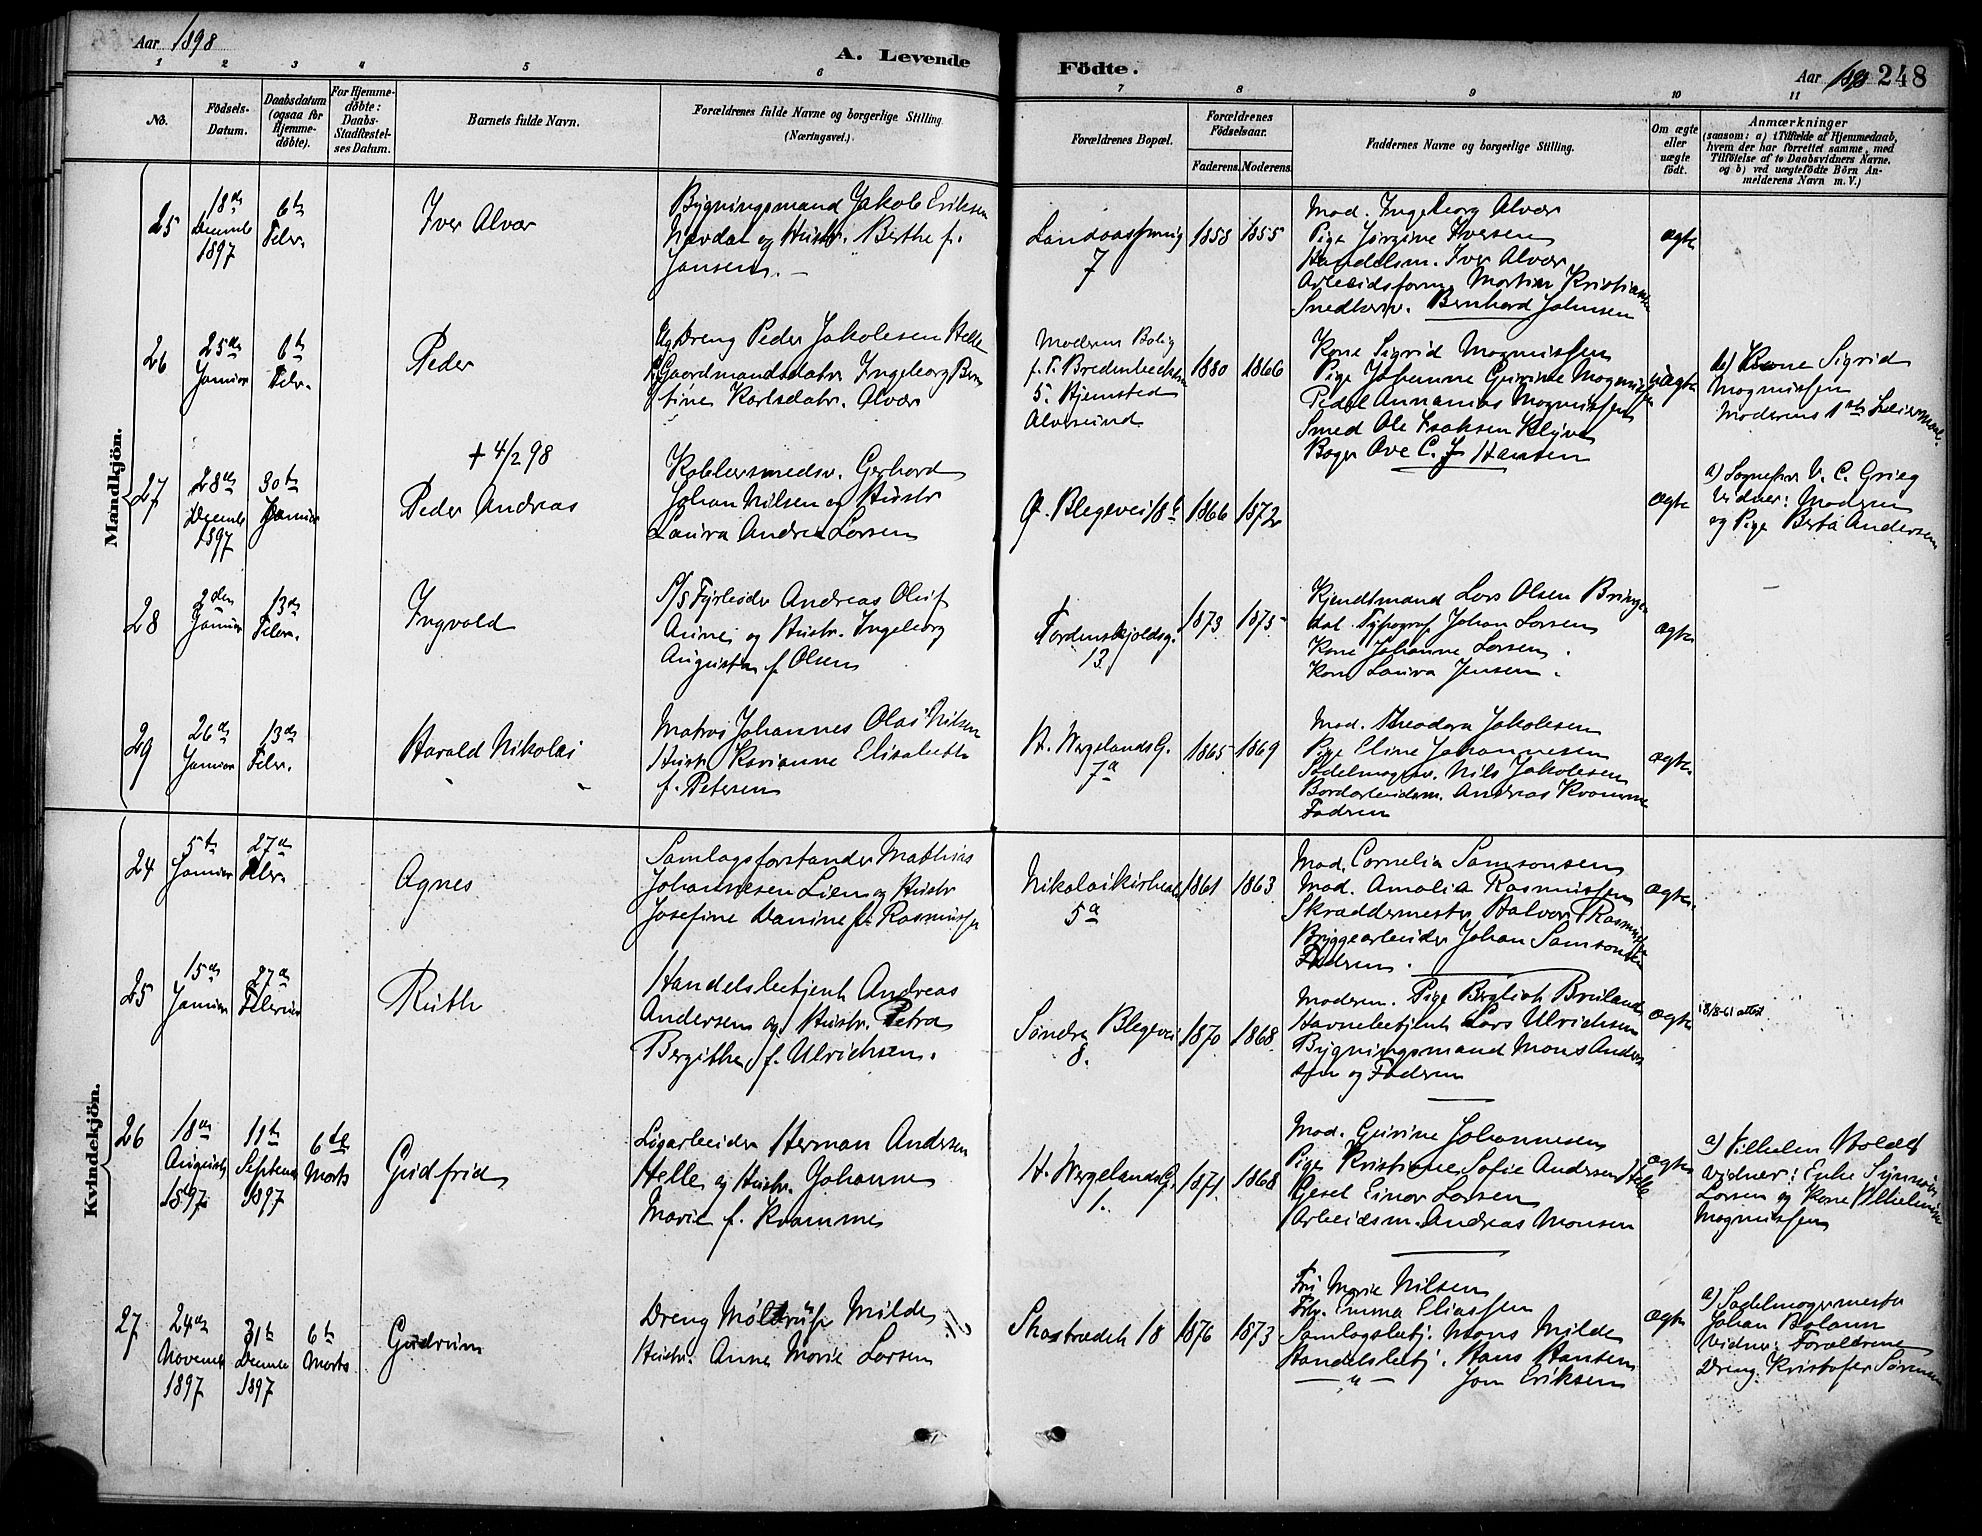 Aar 1898
A. Levende Födte.
Aar 1898 248
1 2 3 4 5 6 7 8 9 10 11
No.
Födsels-Datum.
Daabsdatum (ogsaa for Hjemme-döbte).
For Hjemme-döbte: Daabs-Stadfæstel-ses Datum.
Barnets fulde Navn.
Forældrenes fulde Navne og borgerlige Stilling. (Næringsvei.)
Forældrenes Bopæl.
Forældrenes Födselsaar.
Faderens. Moderens.
Faddernes Navne og borgerlige Stilling.
Om ægte eller uægte födt.
Anmærkninger
(saasom: a) i Tilfælde af Hjemmedaab, hvem der har forrettet samme, med Tilföielse af to Daabsvidners Navne. og b) ved uægtefödte Börn Anmelderens Navn m. V.)
Mandkjön.
25
18de Decembr 1897
6te Febr.
Iver Alvær
Bygningsmand Jakob Eriksen
Nævdal og Hustr. Berthe f.
Jansen.
7
1858 1855
Mad. Ingeborg Alvær
Pige Jørgine Iversen
Handelsm. Iver Alvær
Arbeidsform. Martin Kristiansen
Snedkersv. Bernhard Johnsen
ægte
26
25de Januar
6te Febr.
Peder
Ug. Dreng Peder Jakobsen Helle
Gaardmandsdatr. Ingeborg Bern
tine Karlsdatr. Alvær
Moderens Bolig
5. Hjemsted
Alversund
1880 1866
Kone Sigrid Magnussen
Pige Johanne Gurine Magnussen
Pedel Annanias Magnussen
Smed Ole Isaksen Kleiva
Bager Ave C. J. Hansen
uægte
b) Kone Sigrid
Magnussen
Moderens 1ste Leiermaal.
27
28de Decembr 1897
30te Januar
+ 4/2 98
Peder Andreas
Kobbersmedsv. Gerhard
Johan Nilsen og Hustr
Laura Andrea Larsen
Blegevei 18b
1866 1872
ægte
a) Sognepr V. C. Grieg
Vidner: Moderen
og Pige Berta Andersen
28
2den Januar
13de Febr.
Ingvald
S/S Fyrbøder Andreas Oluf
Aune og Hustr. Ingeborg
Augusta f. Olsen
Tordenskjoldsg.
13
1873 1875
Kjendtmand Lars Olsen Bringe
dal. Typograf Johan Larsen
Kone Johanne Larsen.
Kone Laura Jensen.
ægte
29
26de Januar
13de Febr.
Harald Nikolai
Matros Johannes Olai Nilsen
Hustr Karianne Elisabeth
f. Petersen
H. Wergelands G.
7a
1865 1869
Mad. Theodora Jakobsen
Pige Eline Johannesen
Sadelmagersv. Nils Jakobsen
Andreas Kvamme
Faderen
ægte
Kvindekjön.
24
5te Januar
27de Febr.
Agnes
Samlagsforstander Mathias
Johannesen Lien og Hustr
Josefine Danine f. Rasmussen
Nikolaikirkeal
5a
1861 1863
Mad. Cornelia Samsonsen
Mad. Amalia Rasmussen
Skræddermester Halvor Rasmussen
Bryggearbeider Johan Samsonsen
Faderen.
ægte
25
15de Januar
27de Februar
Ruth
Handelsbetjent Andreas
Andersen og Hustr. Petra
Bergithe f. Ulrichsen.
Søndre Blegevei
8.
1870 1868
Moderen. Pige Bergliot Bruland
Havnebetjent Lars Ulrichsen
Bygningsmand Mons Ander
sen og Faderen
ægte
18/8-61 attest
26
18de August 1897
19te Septembr 1897
6te Marts
Gudfrid
Ligarbeider Herman Andersen
Helle og Hustr. Johanne
Marie f. Kvamme
H. Wergelands G.
1.
1871 1868
Mad. Gurine Johannesen
Pige Kristiane Sofie Andersen Helle
Gesel Einar Larsen
Arbeidsm. Andreas Monsen
ægte
a) Vilhelm Noldal
Vidner: Enke Synneve
Larsen og Kone Vilhelmine
Magnussen
27
24de Novembr 1897
31te Decembr 1897
6te Marts
Gudrun
Dreng Milde
Hustr. Anne Marie Larsen
Skostrædet 18
1876 1873
Fru Marie Nilsen
Frk. Emma Eliassen
Samlagsbetj. Mons Milde
Handelsbetj. Hans Hansen
— " — Jon Eriksen
ægte
a) Sadelmagermester
Johan Bolann
Vidner: Forældrene
Dreng Kristofer Sørensen